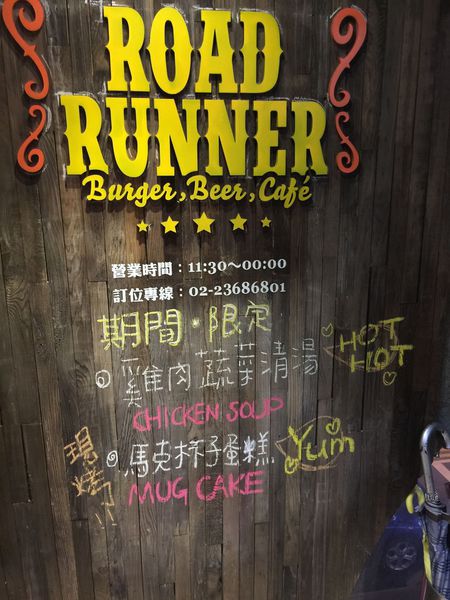 ROAD
RUNNER
Burger, Beer, Café
營業時間：11:30～00:00
訂位專線：02-23686801
期間·限定
雞肉蔬菜清湯 HOT HOT
CHICKEN SOUP
現烤!! 馬克杯子蛋糕 Yum
MUG CAKE